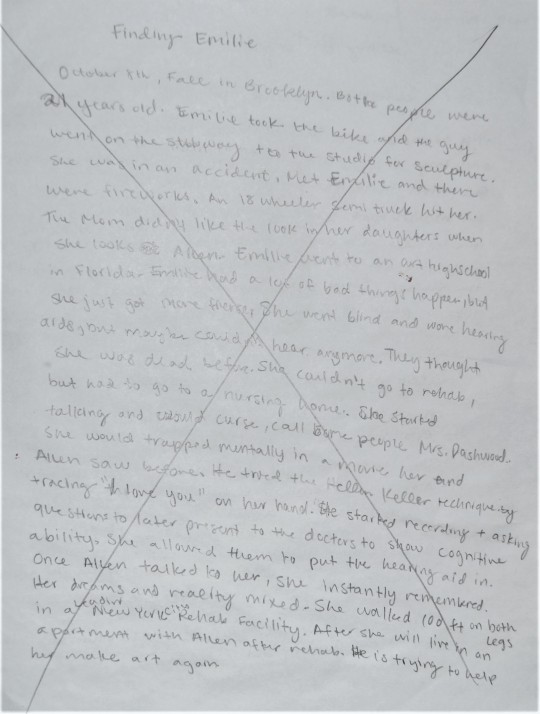 Finding Emilie
October 8th, Fall in Brooklyn. Both people were
21 years old. Emilie took the bike and the guy
went on the subway to the studio for sculpture.
She was in an accident. Met Emilie and there
were fireworks. An 18 wheeler semi truck hit her.
The Mom didn't like the look in her daughters when
she looks Allen. Emilie went to an art highschool
in Florida. Emilie had a lot of bad things happen, but
she just got more fierce. She went blind and wore hearing
aids, but maybe couldn't hear anymore. They thought
she was dead before. She couldn't go to rehab,
but had to go to a nursing home. She started
talking and would curse, call some people Mrs. Dashwood.
She would trapped mentally in a movie her and
Allen saw before. He tried the Hellen Keller technique by
tracing "I love you" on her hand. He started recording + asking
questions to later present to the doctors to show cognitive
ability. She allowed them to put the hearing aid in.
Once Allen talked to her, she instantly remembered.
Her dreams and reality mixed. She walked 100 ft on both legs
in a New York City Rehab Facility. After she will live in an
apartment with Allen after rehab. He is trying to help
her make art again